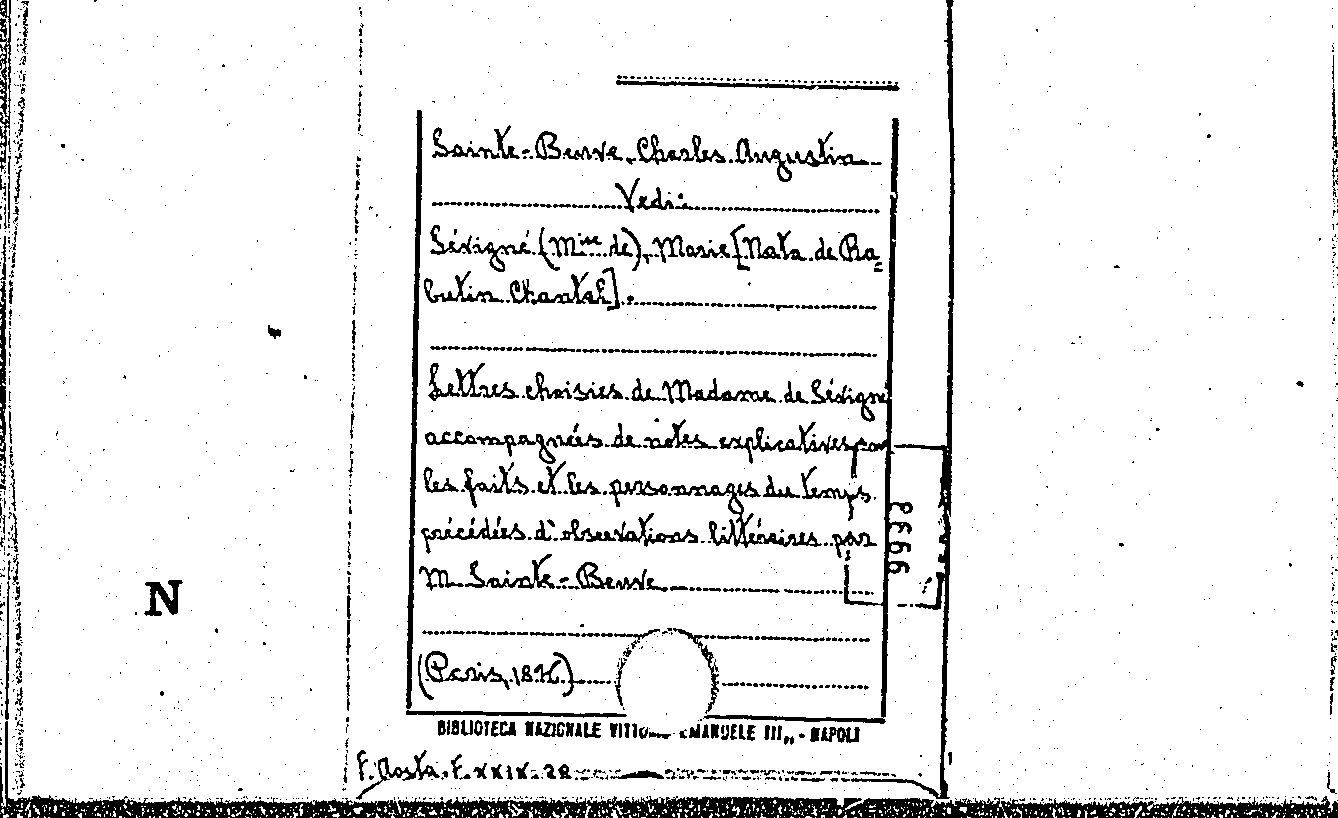 Sainte-Beuve, Charles Augustin
Vedi:
Sévigné (Mise de), Marie [Nata de Ra=
butin Chantal].
Lettres choisies de Madame de Sévigné
accompagnées de notes explicatives sur
les faits et les personnages du temps
précédées d'observations littéraires par
M. Sainte-Beuve
9999
N
(Paris,
BIBLIOTECA NAZIONALE VITTORIO EMANUELE III,, - NAPOLI
F. Aosta. F. XXIX. 28